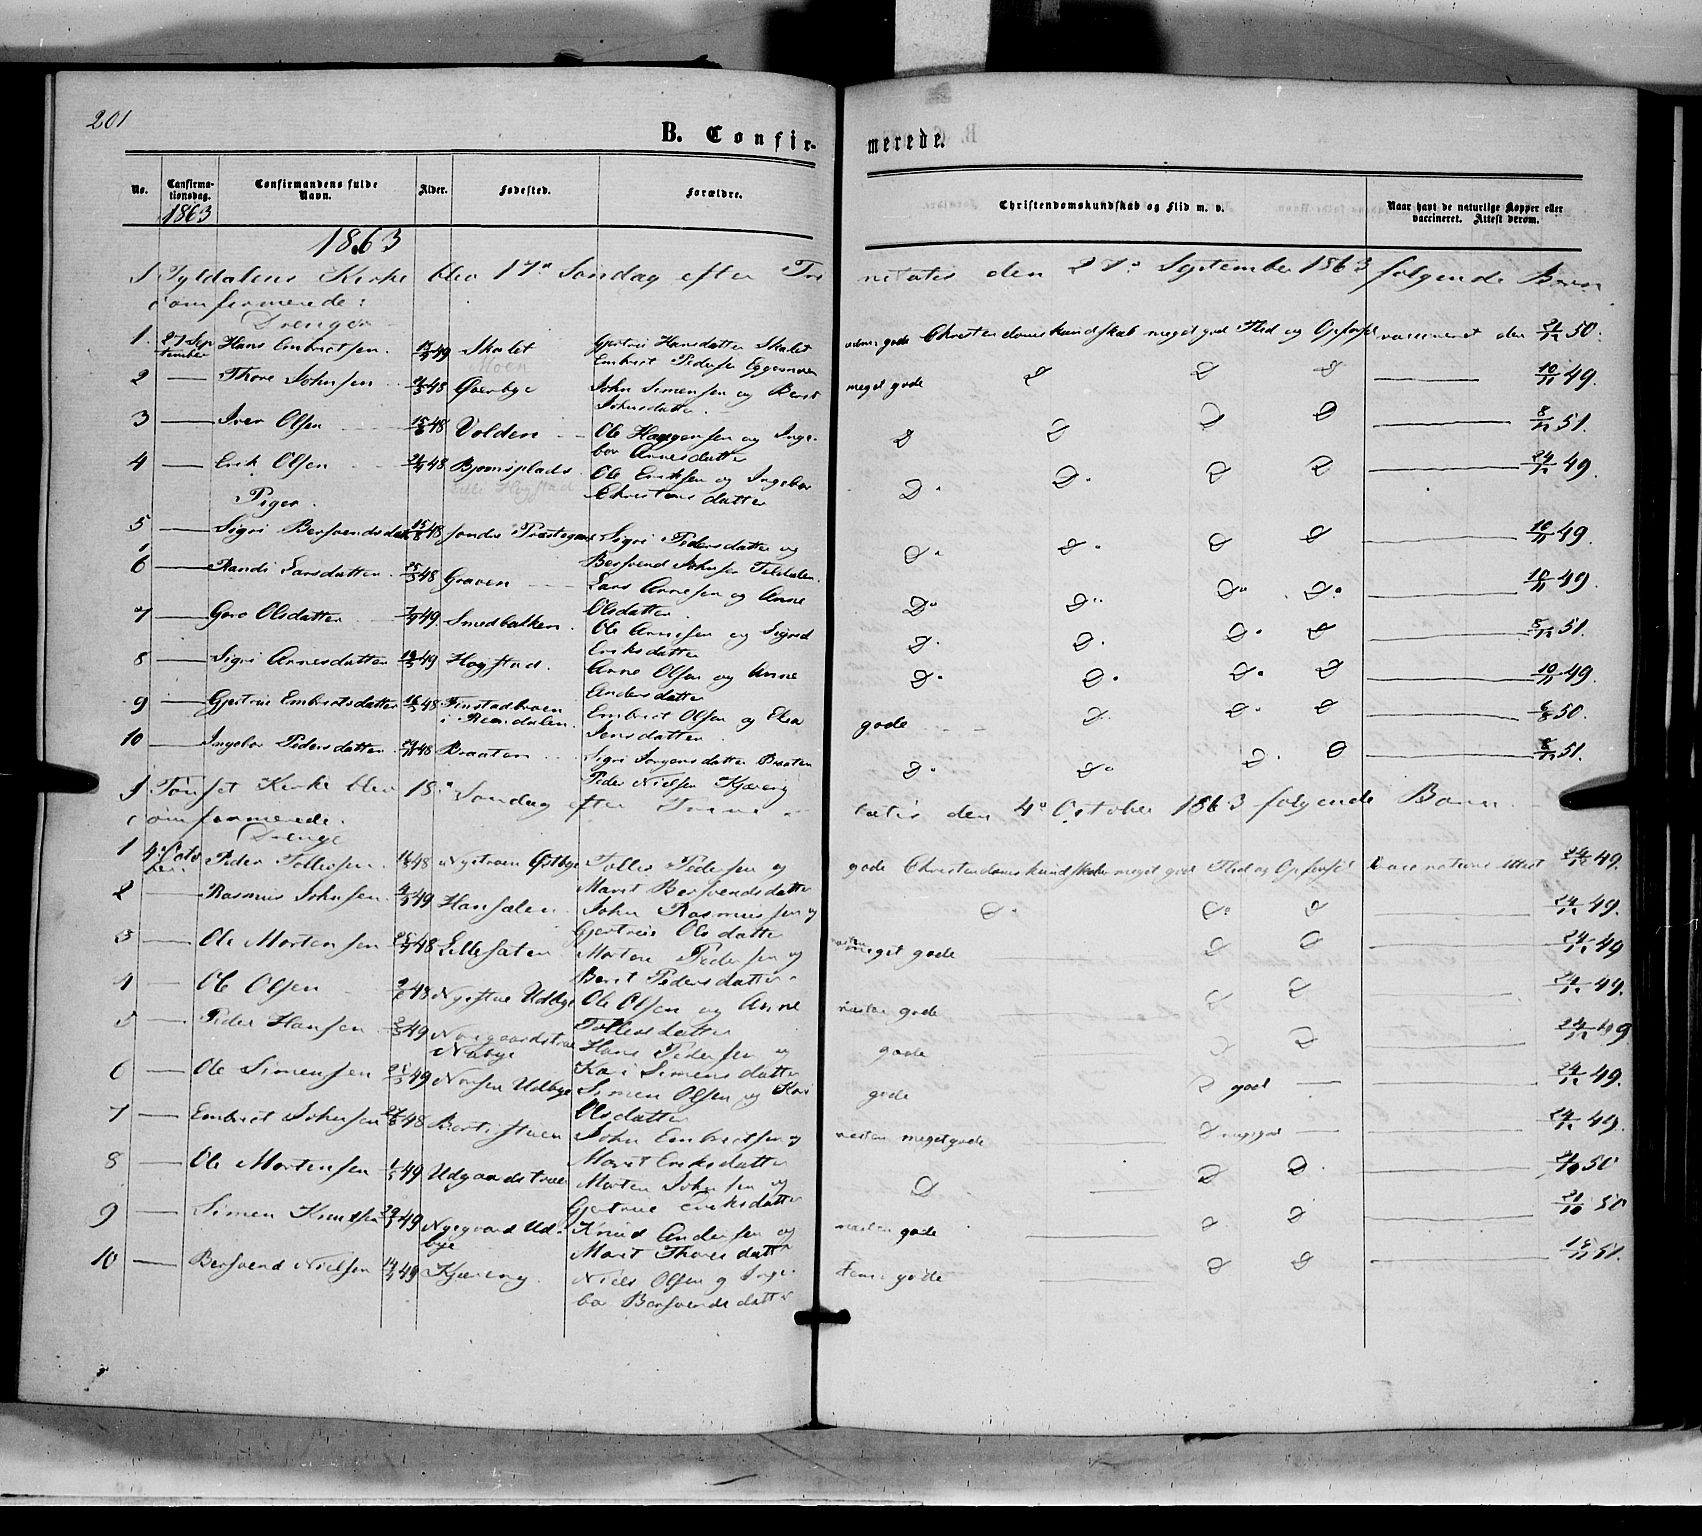 201
B. Confir-
merede.
No.
Confirma-
tionsdag.
1863
Confirmandens fulde
Navn.
Alder.
Fødested.
Forældre.
Christendomskundskab og Flid m. v.
Naar havt de naturlige Kopper eller
vaccineret. Attest derom.
1863
I Tyldalens Kirke blev 17de Søndag efter Tri
nitatis den 27de September 1863 følgende Børn
confirmerede:
Drenge
1. 27 Sep Hans Embretsen. 49 Skalet Gjertrui Hansdatter Skalet
tember Moen Embret Pedersen Eggesmoen
gode Christendomskundskab meget god Flid og Opførsel vaccineret den 50.
2 — Thore Johnsen 48 Øverbye John Simensen og Berit
Johnsdatter.
meget gode D D D — 10/11 49.
3 — Iver Olsen 48 Volden Ole Haagensen og Inge-
bor Arnesdatter
D D D D — 51.
4 — Erik Olsen 48 Bjørnsplads Ole Eriksen og Ingebor
Lille Høystad Christensdatter
D D D D — 49.
Piger.
5 — Sigri Bersvendsdat 15/8 48 søndre Præstegaard Sigri Pedersdatter og
Bersvend Johnsen Tildalen.
D D D D — 10/11 49.
6 — Randi Larsdatter 48 Graven Lars Arnesen og Anne
Olsdatter.
D D D D — 10/11 49.
7 — Goro Olsdatter 49. Smedbakken. Ole Arnesen og Sigrid
Eriksdatter
D D D D — 51.
8 — Sigri Arnesdatter 49 Høystad. Arne Olsen og Anne
Andersdatter
D D D D — 10/11 49.
9 — Gjertrue Embretsdatter 48 Finstadhaen Embret Olsen og Elea
i Rendalen. Jensdatter
gode D D D — 50.
10 — Ingebor Pedersdatter 48 Braaten Sigri Jørgensdatter Braaten
Peder Nielsen Kjæreng
D D D D — 51.
I Tønset Kirke blev 18de Søndag efter Trini
tatis den 4de October 1863 følgende Børn
confirmerede.
Drenge
1 4de Octo Peder Tollefsen. 48 Nystuen Østbye Tollef Pedersen og
ber. Marit Bersvendsdatter
gode Christendomskundskab meget god Flid og Opførsel 49.
2 — Rasmus Johnsen 49 Hansalen. John Rasmussen og
Gjertrue Olsdatter
D D D 24/11 49.
3 — Ole Mortensen 48 Lillesæten Morten Pedersen og
Berit Pedersdatter
næsten meget gode D D — 49
4 — Ole Olsen 48 Nystue Udbye Ole Olsen og Anne
Tollefsdatter
næsten gode — D D — 49.
5 — Peder Hansen 49 Norgaardstue Hans Pedersen og
Nabye Kari Simensdatter
gode D D — 49
6 — Ole Simensen 49 Udbye Simen Olsen og Kari
Olsdatter
gode D god — 49.
7 — Embret Johnsen 48 John Embretsen og
Marit Eriksdatter
næsten meget gode — D — 49.
8 — Ole Mortensen 49 Udgaardstrøe Morten Johnsen og
Gjertrue Eriksdatter
D — D D — 50
9 — Simen Knudsen 49 Nygaard Ud- Knud Andersen og
bye Marit Thoresdatter
næsten gode — D D — 21/10 50
10 — Bersvend Nielsen 49 Kjæreng. Niels Olsen og Inge-
bor Bersvendsdatter
gode — D D — 51.